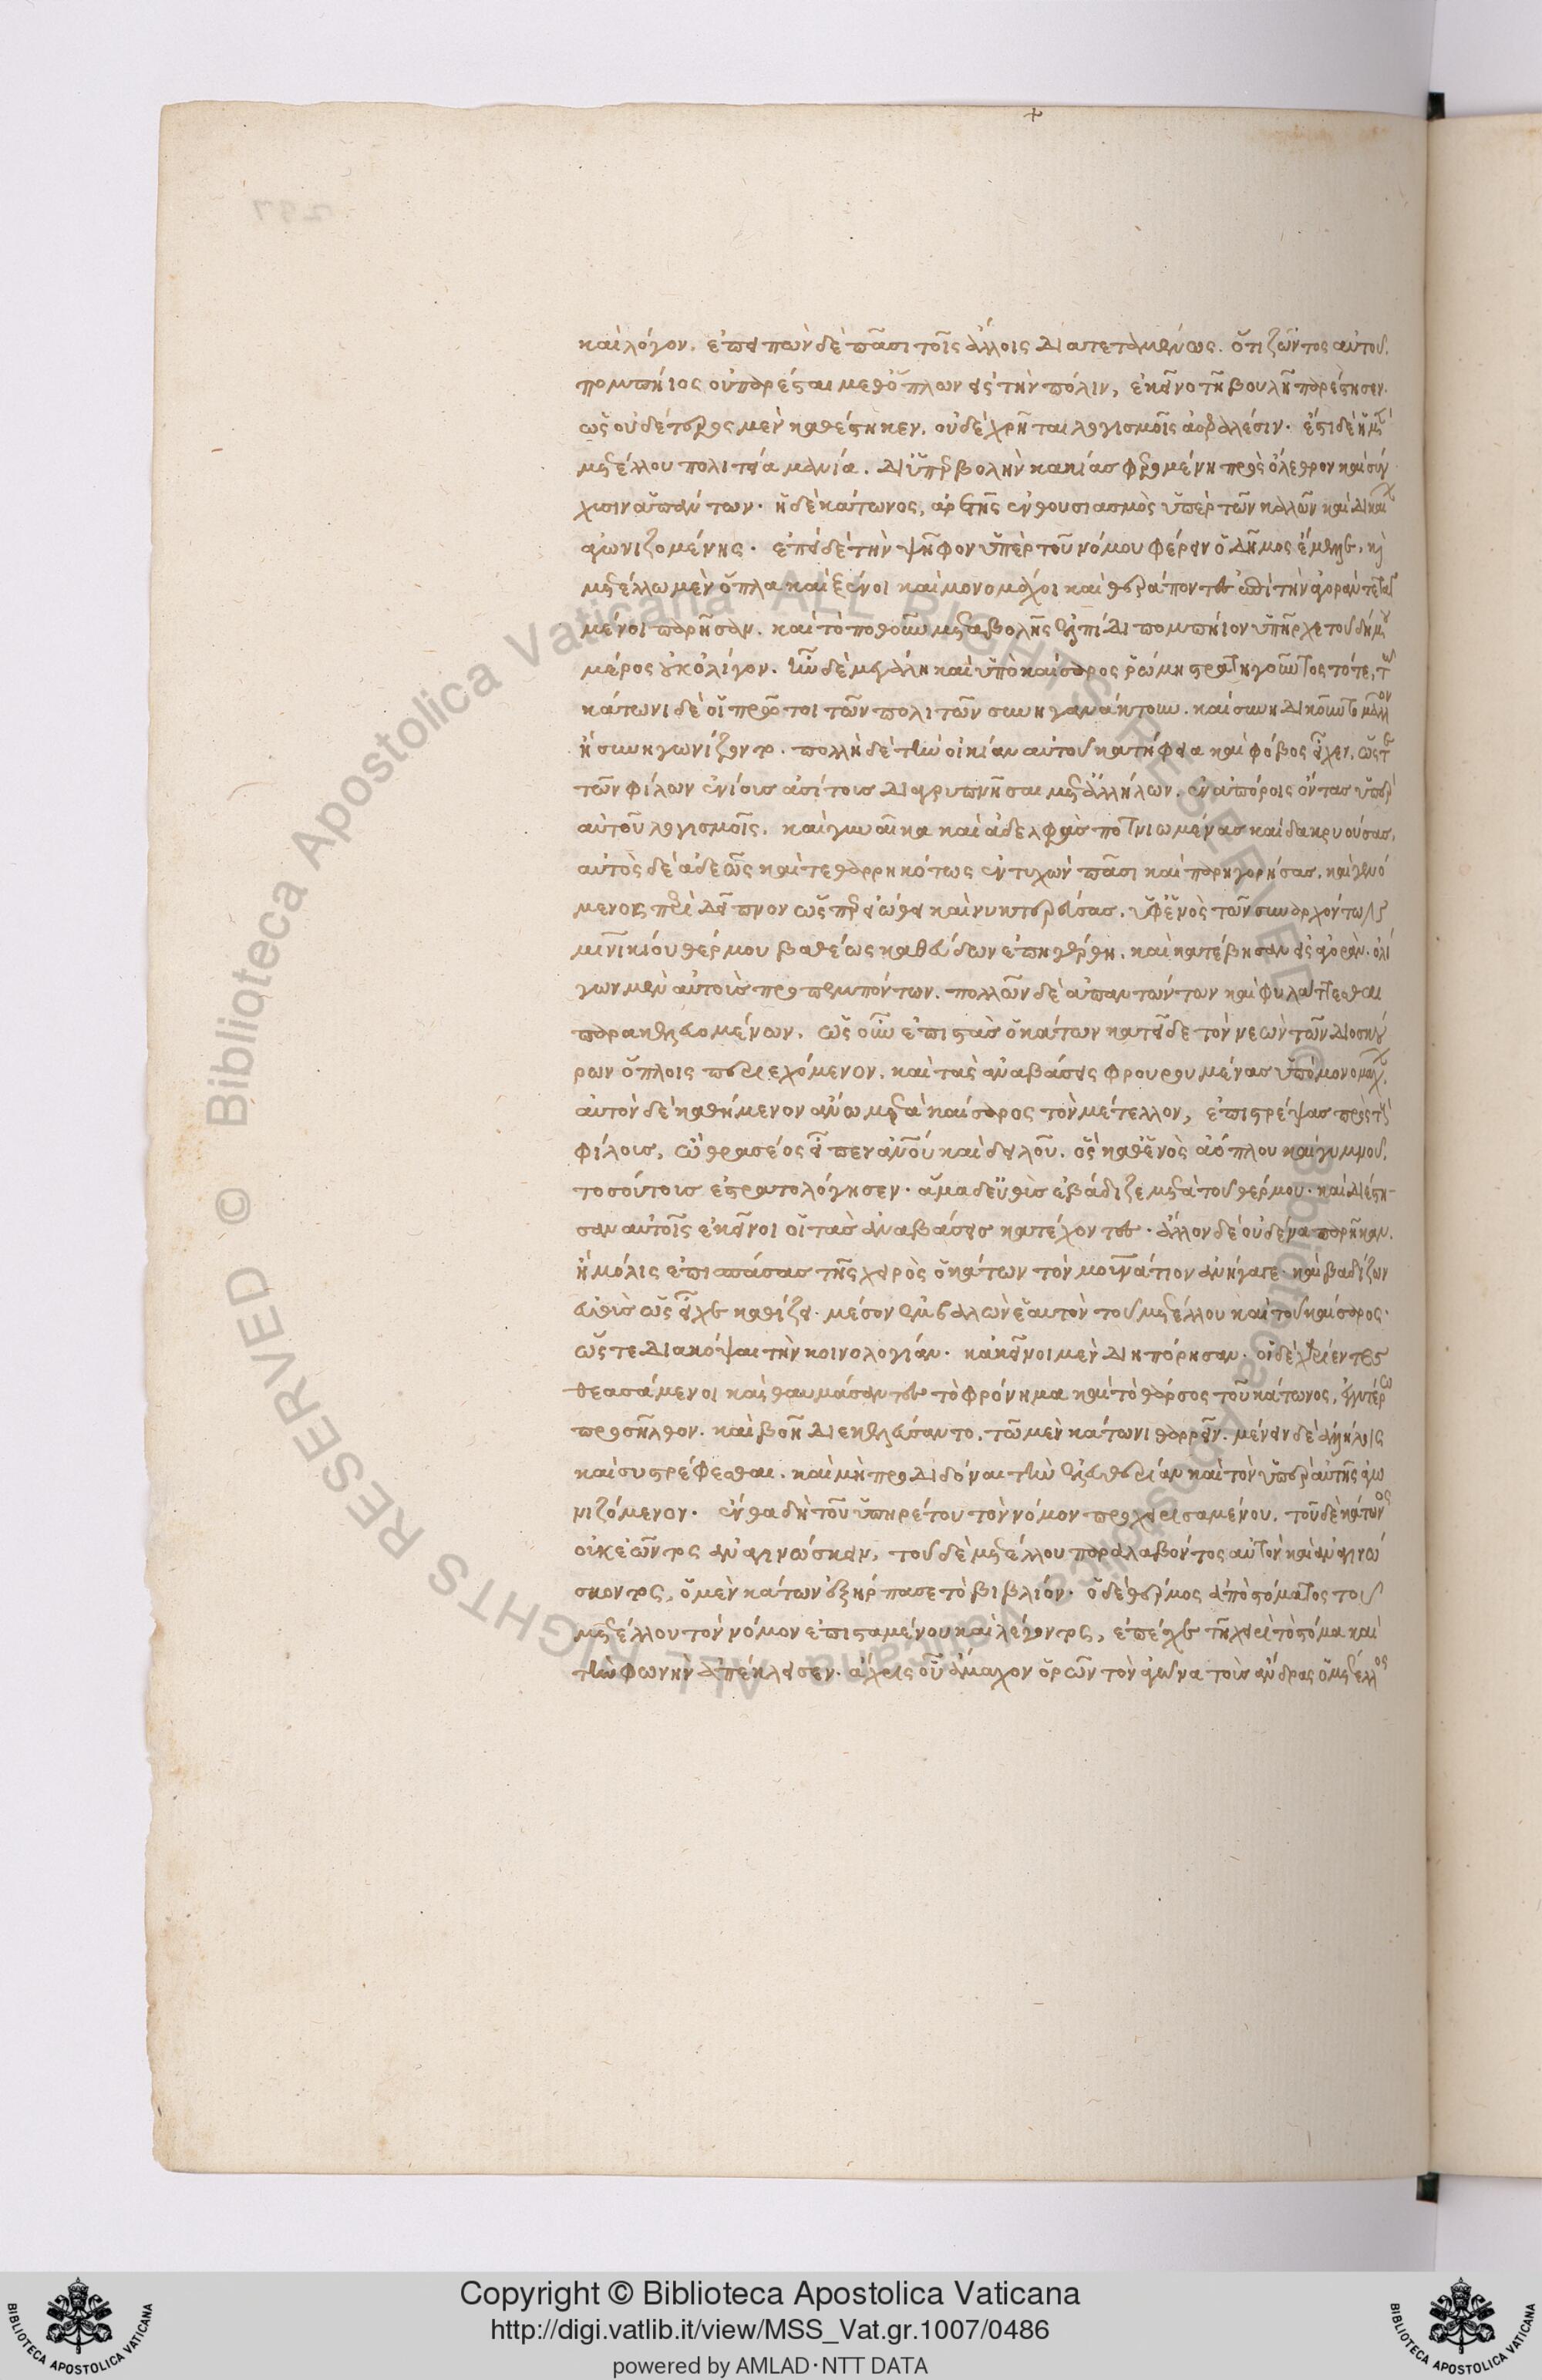 καὶ λόγον. ἐπειπὼν δὲ πᾶσι τοῖς ἄλλοις διατεταμένως. ὅτι ζῶντος αὐτοῦ,
πομπήιος οὐ παρέσται μεθ᾽ ὅπλων εἰς τὴν πόλιν, ἐκεῖνο τῇ βουλῇ παρέστησεν.
ὡς οὐδέτερος μὲν καθέστηκεν. οὐδὲ χρῆται λογισμοῖς ἀσφαλέσιν· ἔστι δὲ ἡ μὲν
μετέλλου πολιτεία μανία. δι᾽ ὑπερβολὴν κακίας φερομένη πρὸς ὄλεθρον καὶ σύγ
χυσιν ἁπάντων· ἡ δὲ κάτωνος, ἀρετῆς ἐνθουσιασμὸς ὑπὲρ τῶν καλῶν καὶ δικαίων
ἀγωνιζομένης· ἐπεὶ δὲ τὴν ψῆφον ὑπὲρ τοῦ νόμου φέρειν ὁ δῆμος ἔμελλε, καὶ
μετέλλω μὲν ὅπλα καὶ ξένοι καὶ μονομάχοι καὶ θεράποντες ἐπὶ τὴν ἀγορὰν τεταγ
μένοι παρῆσαν. καὶ τὸ ποθοῦν μεταβολῆς ἐλπίδι πομπήιον ὑπῆρχε τοῦ δήμου
μέρος οὐκ ὀλίγον. ἦν δὲ μεγάλη καὶ ὑπὸ καίσαρος ῥώμη στρατηγοῦντος τότε, τῷ
κάτωνι δὲ οἱ πρῶτοι τῶν πολιτῶν συνηγανάκτουν. καὶ συνηδικοῦντο μᾶλλον
ἢ συνηγωνίζοντο. πολλὴ δὲ τὴν οἰκίαν αὐτοῦ κατήφεια καὶ φόβος εἶχεν, ὥστε
τῶν φίλων ἐνίους ἀσίτους διαγρυπνῆσαι μετ᾽ ἀλλήλων. ἐν ἀπόροις ὄντας ὑπὲρ
αὐτοῦ λογισμοῖς. καὶ γυναῖκα καὶ ἀδελφὰς ποτνιωμένας καὶ δακρυούσας,
αὐτὸς δὲ ἀδεῶς καὶ τεθαρρηκότως ἐντυχὼν πᾶσι καὶ παρηγορήσας, καὶ γενό
μενος περὶ δεῖπνον ὥσπερ εἰώθει καὶ νυκτερεύσας. ὑφ᾽ ἑνὸς τῶν συναρχόντων
μινικίου θέρμου βαθέως καθεύδων ἐπηγέρθη. καὶ κατέβησαν εἰς ἀγορὰν. ὀλί
γων μὲν αὐτοὺς προπεμπόντων. πολλῶν δὲ ἀπαντώντων καὶ φυλάττεσθαι
παρακελευομένων. ὡς οὖν ἐπιστὰς ὁ κάτων κατεῖδε τὸν νεὼν τῶν διοσκού
ρων ὅπλοις περιεχόμενον. καὶ τὰς ἀναβάσεις φρουρουμένας ὑπὸ μονομάχων.
αὐτὸν δὲ καθήμενον ἄνω μετὰ καίσαρος τὸν μέτελλον, ἐπιστρέψας πρὸς τοὺς
φίλους, ὢ θρασέος εἶπεν ἀνθρώπου καὶ δειλοῦ. ὃς καθ᾽ ἑνὸς ἀόπλου καὶ γυμνοῦ,
τοσούτους ἐστρατολόγησεν· ἅμα δ᾽ εὐθὺς ἐβάδιζε μετὰ τοῦ θέρμου· καὶ διέστη-
σαν αὐτοῖς ἐκεῖνοι οἱ τὰς ἀναβάσεις κατέχοντες· ἄλλον δὲ οὐδένα παρῆκαν.
ἢ μόλις ἐπισπάσας τῆς χειρὸς ὁ κάτων τὸν μουνάτιον ἀνήγαγε· καὶ βαδίζων
εὐθὺς ὡς εἶχε καθίζει· μέσον ἐμβαλὼν ἑαυτὸν τοῦ μετέλλου καὶ τοῦ καίσαρος·
ὥστε διακόψαι τὴν κοινολογίαν· κἀκεῖνοι μὲν διηπόρησαν· οἱ δὲ χαρίεντες
θεασάμενοι καὶ θαυμάσαντες τὸ φρόνημα καὶ τὸ θάρσος τοῦ κάτωνος, ἐγγυτέρω
προσῆλθον. καὶ βοῇ διεκελεύσαντο, τῷ μὲν κάτωνι θαρρεῖν. μένειν δὲ ἀλλήλοις
καὶ συστρέφεσθαι. καὶ μὴ προδιδόναι τὴν ἐλευθερίαν καὶ τὸν ὑπὲρ αὐτῆς ἀγω
νιζόμενον· ἔνθα δὴ τοῦ ὑπηρέτου τὸν νόμον προχειρισαμένου. τοῦ δὲ κάτωνος
οὐκ ἐῶντος ἀναγινώσκειν, τοῦ δὲ μετέλλου παραλαβόντος αὐτὸν καὶ ἀναγινώ
σκοντος, ὁ μὲν κάτων ἐξήρπασε τὸ βιβλίον· ὁ δὲ θέρμος ἀπὸ στόματος τοῦ
μετέλλου τὸν νόμον ἐπισταμένου καὶ λέγοντος, ἐπέσχε τῇ χειρὶ τὸ στόμα καὶ
τὴν φωνὴν ἀπέκλεισεν· ἄχρις οὗ ἄμαχον ὁρῶν τὸν ἀγῶνα τοὺς ἄνδρας ὁ μέτελλος
Copyright © Biblioteca Apostolica Vaticana
http://digi.vatlib.it/view/MSS_Vat.gr.1007/0486
powered by AMLAD·NTT DATA
BIBLIOTECA APOSTOLICA VATICANA
BIBLIOTECA APOSTOLICA VATICANA
© Biblioteca Apostolica Vaticana ALL RIGHTS RESERVED
© Biblioteca Apostolica Vaticana ALL RIGHTS RESERVED